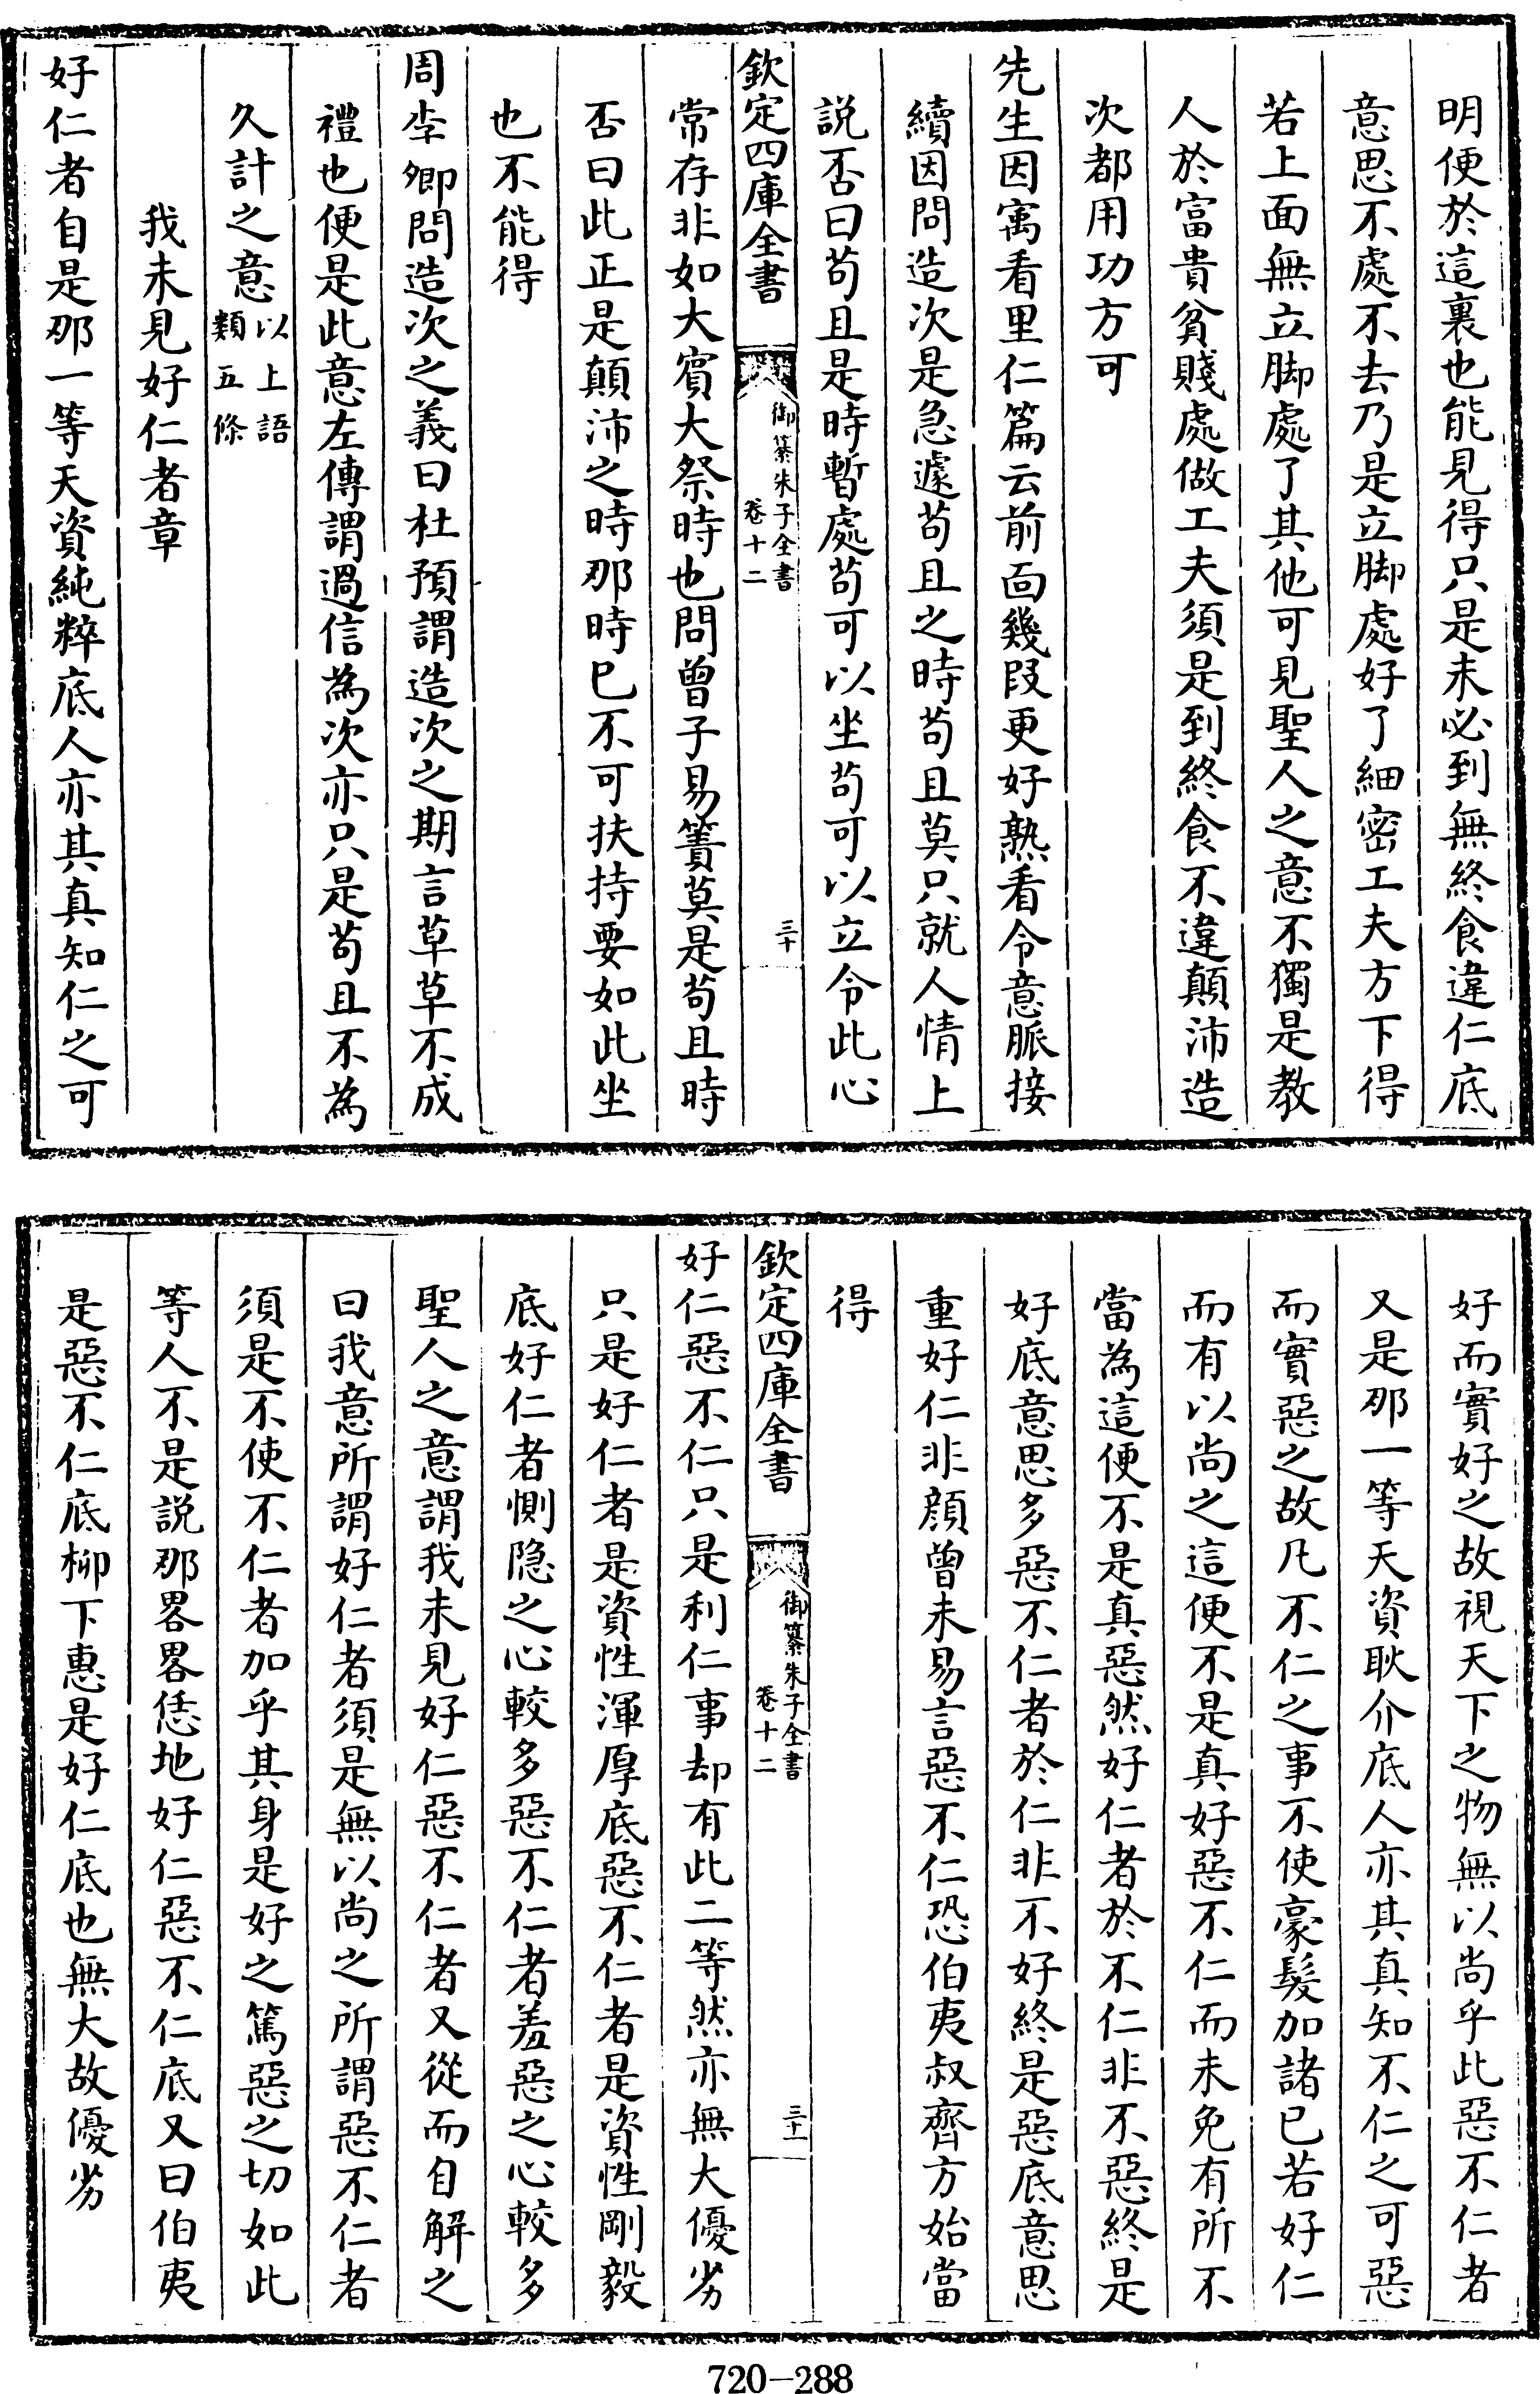 明便於這裏也能見得只是未必到無終食違仁底
意思不處不去乃是立脚處好了細密工夫方下得
若上面無立脚處了其他可見聖人之意不獨是教
人於富貴貧賤處做工夫須是到終食不違顛沛造
次都用功方可
先生因寓看里仁篇云前面幾段更好熟看令意脈接
續因問造次是急遽苟且之時苟且莫只就人情上
説否曰苟且是時暫處苟可以坐苟可以立令此心
欽定四庫全書
御纂朱子全書
卷十二
三十
常存非如大賓大祭時也問曾子易簀莫是苟且時
否曰此正是顛沛之時那時已不可扶持要如此坐
也不能得
周李卿問造次之義曰杜預謂造次之期言草草不成
禮也便是此意左傳謂過信為次亦只是苟且不為
久計之意以上語
類五條
我未見好仁者章
好仁者自是那一等天資純粹底人亦其真知仁之可
好而實好之故視天下之物無以尚乎此惡不仁者
又是那一等天資耿介底人亦其真知不仁之可惡
而實惡之故凡不仁之事不使豪髮加諸已若好仁
而有以尚之這便不是真好惡不仁而未免有所不
當為這便不是真惡然好仁者於不仁非不惡終是
好底意思多惡不仁者於仁非不好終是惡底意思
重好仁非顔曾未易言惡不仁恐伯夷叔齊方始當
得
欽定四庫全書
御纂朱子全書
卷十二
三十一
好仁惡不仁只是利仁事却有此二等然亦無大優劣
只是好仁者是資性渾厚底惡不仁者是資性剛毅
底好仁者惻隐之心較多惡不仁者羞惡之心較多
聖人之意謂我未見好仁惡不仁者又從而自解之
曰我意所謂好仁者須是無以尚之所謂惡不仁者
須是不使不仁者加乎其身是好之篤惡之切如此
等人不是説那畧畧恁地好仁惡不仁底又曰伯夷
是惡不仁底柳下惠是好仁底也無大故優劣
720-288